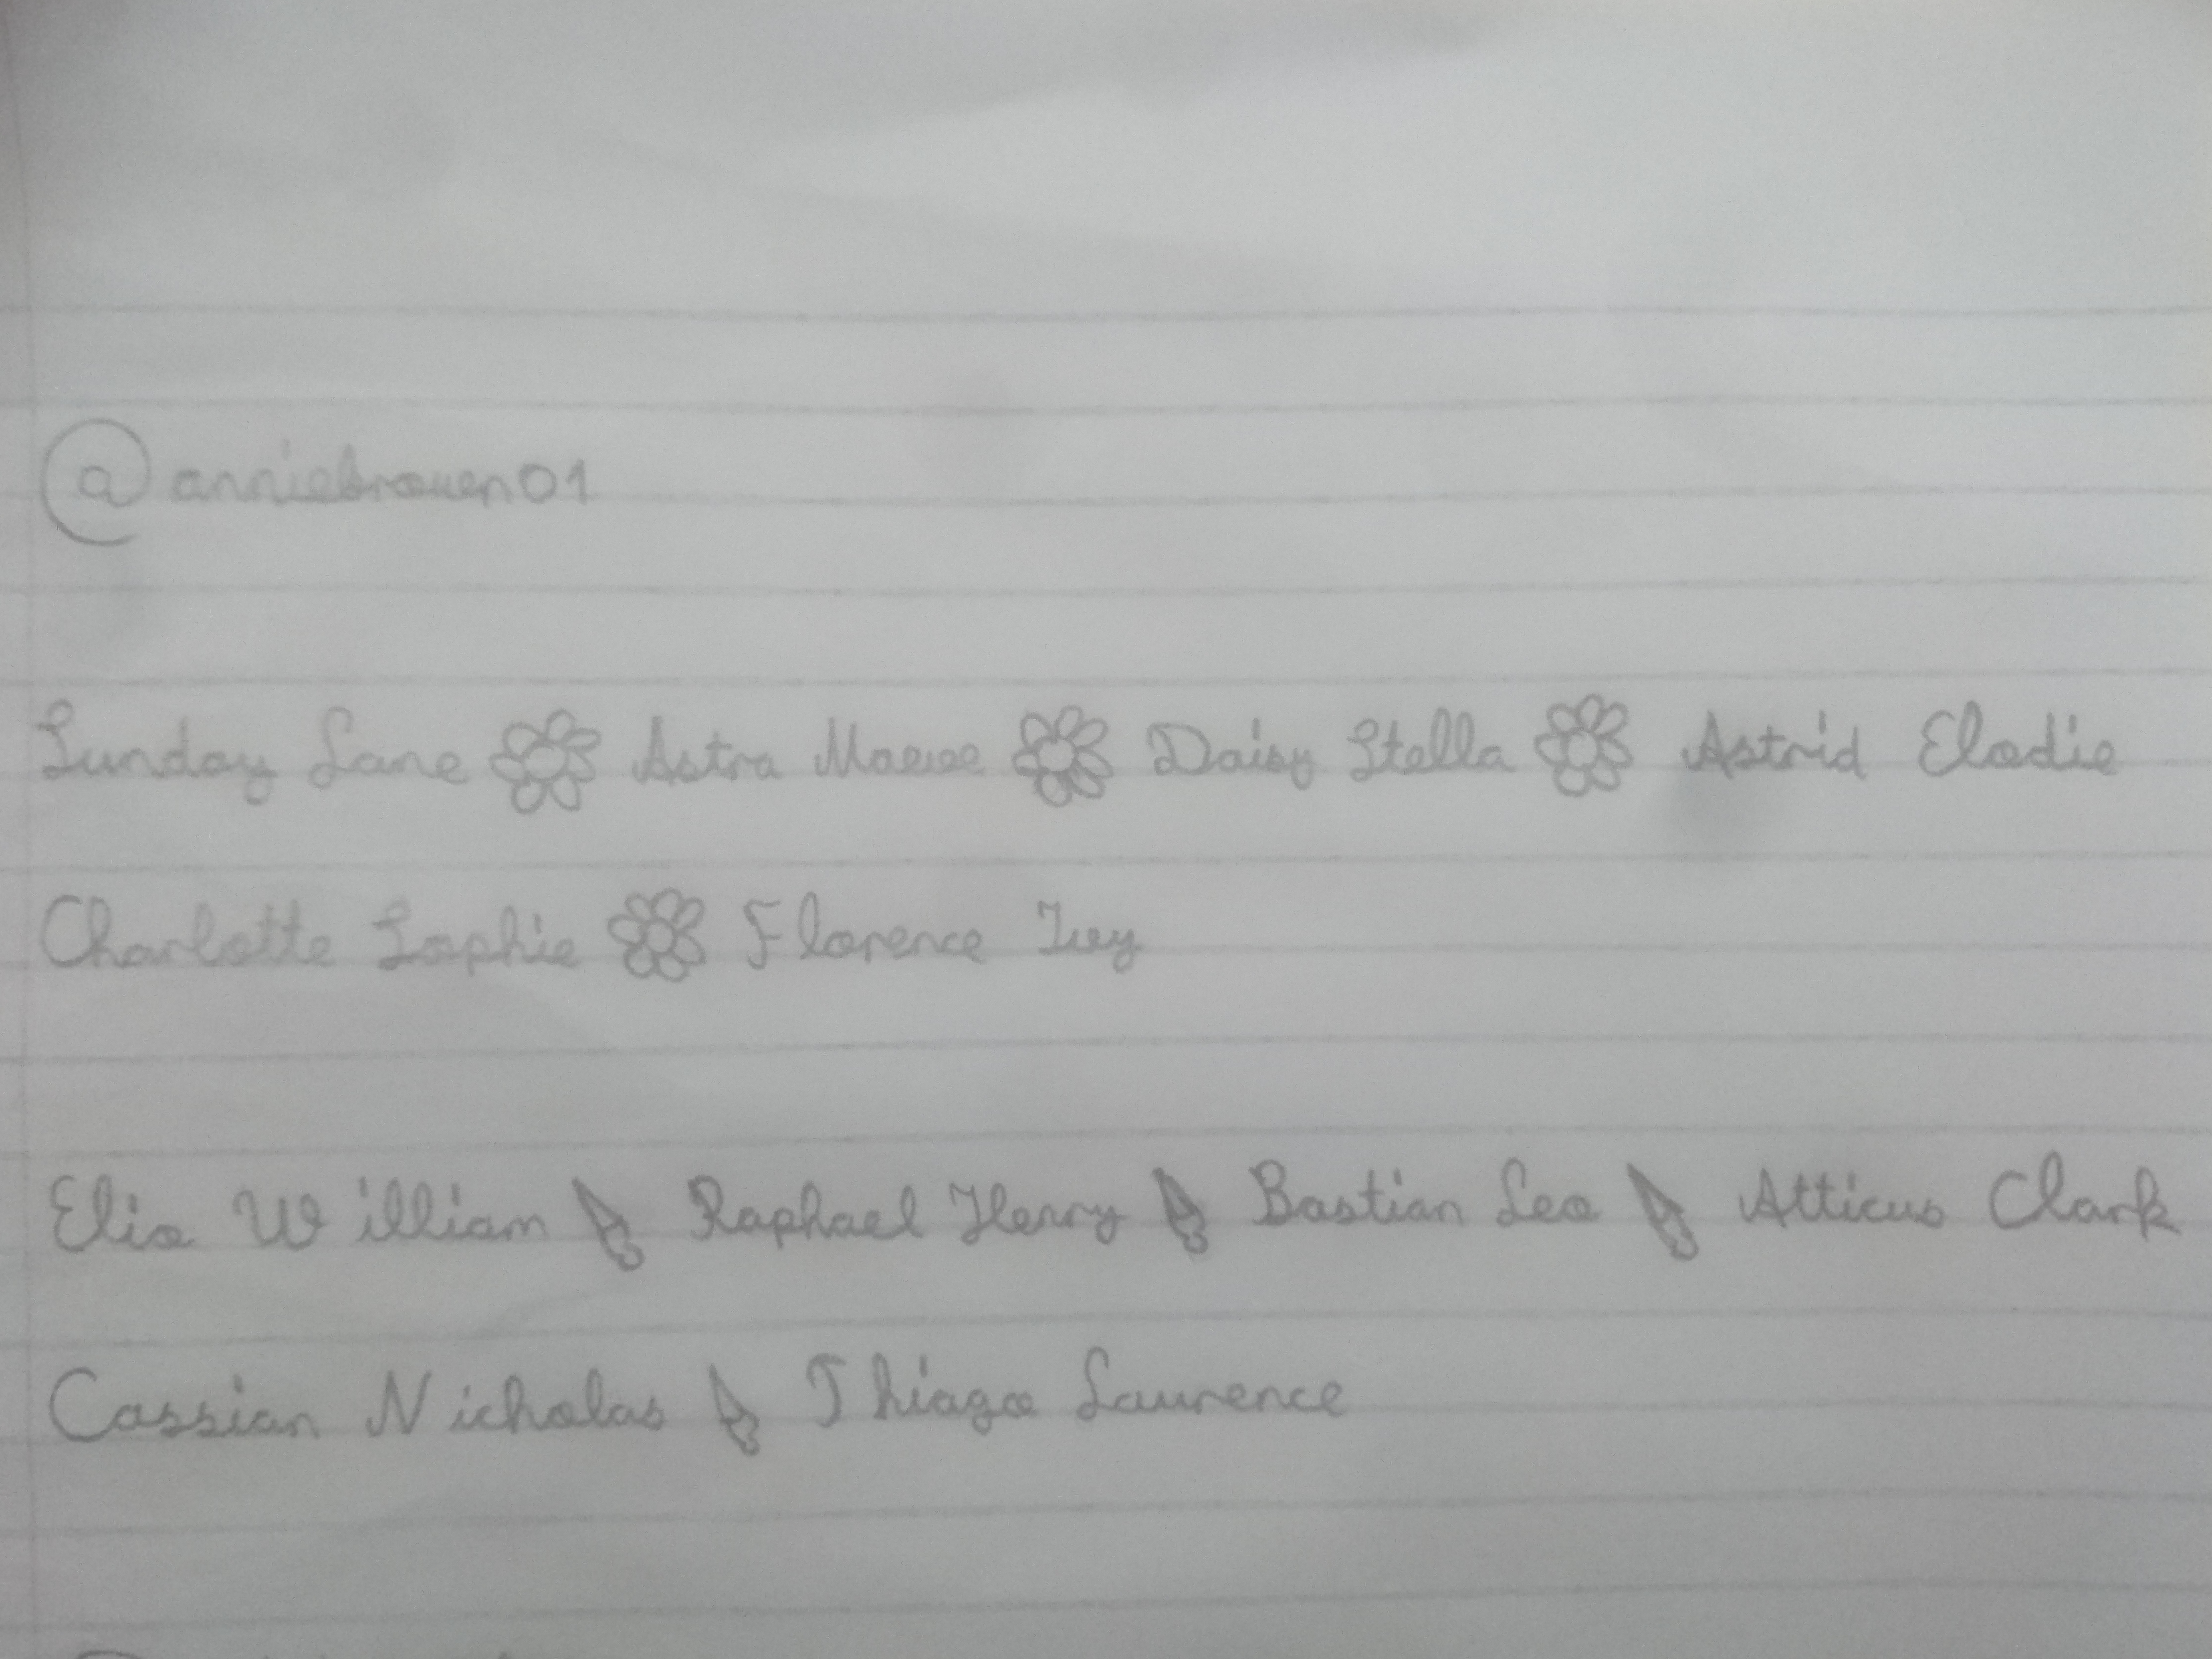 @anniebrowen01
Sunday Lane Astra Maeve Daisy Stella Astrid Elodie
Charlotte Sophie Florence Ivy
Elio William Raphael Henry Bastian Leo Atticus Clark
Cassian Nicholas Thiago Laurence